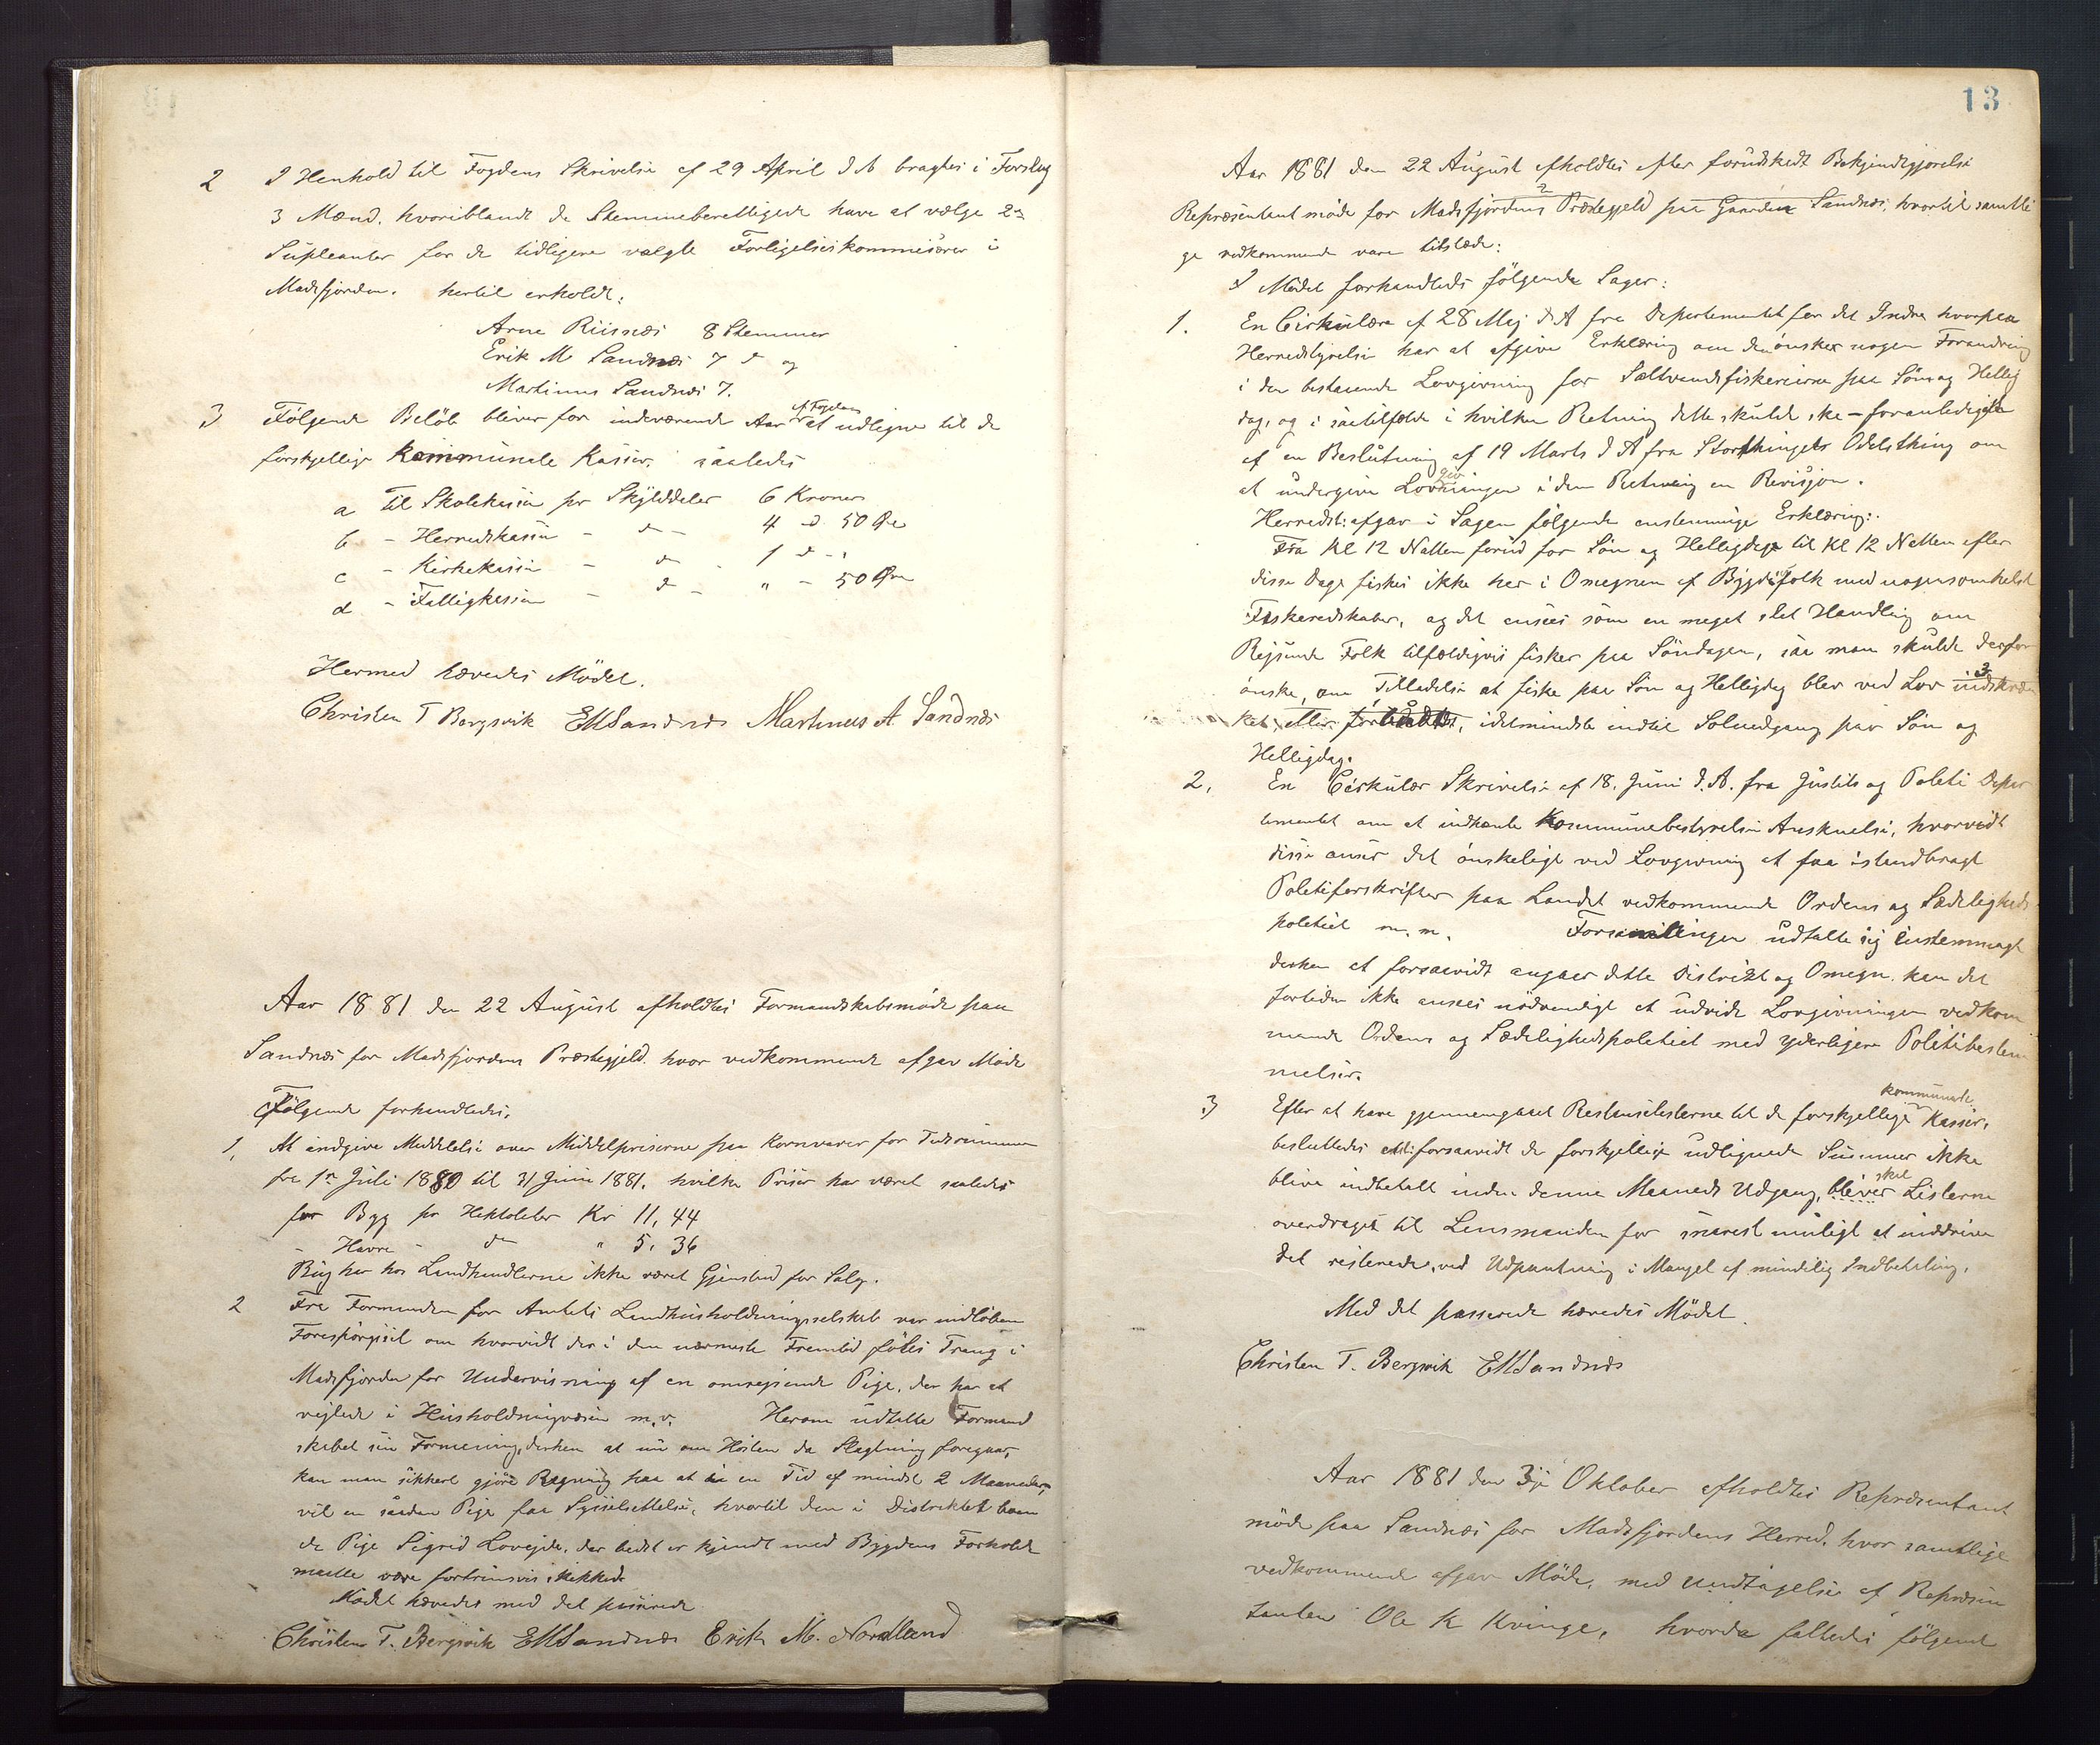 2 I Henhold til Fogdens Skrivelse af 29 April d A bragtes i Forslag
3 Mænd, hvoriblandt de Stemmeberettigede have at vælge 2de
Supleanter for de tidligere valgte Forligelseskommisærer i
Masfjorden. hertil erholdt:
Arne Riisnæs 8 Stemmer
Erik M. Sandnæs 7 d og
Martinus Sandnæs 7.
3 Følgende Beløb bliver for indeværende Aar af Fogden at udligne til de
forskjellige Kommunale Kasser, saaledes
a til Skolekassen pr Skylddaler 6 Kroner
b - Herredskassen - d - 4 d 50 Øre
c - Kirkekassen - d - 1 d - "
d - Fattigkassen - d - " - 50 Øre
Hermed hævedes Mödet.
Christen T Bergsvik EMSandnæs Martinus A Sandnæs
Aar 1881 den 22 August afholdtes Formandskabsmöde paa
Sandnæs for Masfjordens Præstegjeld. hvor vedkommende afgav Möde
Fölgende forhandledes.
1, At indgive Meddelelse over Middelpriserne paa Kornvarer for Tidsrummet
fra 1ste Juli 1880 til 31 Juni 1881. hvilke Priser har været saaledes
for Byg pr Hektoleter Kr 11,44
- Havre - d " 5,36
Rug har hos Landhandlerne ikke været Gjenstand for Salg.
2 Fra Formanden for Amtets Landhusholdningsselskab var indløben
Forespörgsel om hvorvidt der i den nærmeste Fremtid föles Trang i
Masfjorden for Undervisning af en omreisende Pige, der har at
vejlede i Husholdningvæsen m.v. Herom udtalte Formand
skabet sin Formening, derhen at nu om Hösten da Slagtning foregaar,
kan man sikkert gjöre Regning paa at i en Tid af mindst 2 Maaneder,
vil en saadan Pige faa Sysselsettelse, hvortil den i Distriktet boen
de Pige Sigrid Lovejde, der bedst er kjendt med Bygdens Forholde
maatte være fortrinsvis skikket
Mödet hævedes med det passerede
Christen T. Bergsvik EMSandnæs Erik M. Nordland
13
Aar 1881 den 22 August afholdtes efter forudskedt Bekjendtgjørelse
Repræsentant möde for Masfjordens Præstegjeld paa Gaarden Sandnæs, hvortil samtli
ge vedkommende vare tilstede:
I Mödet forhandledes fölgende Sager:
1. En Cirkulære af 28 Maj d A fra Departementet for det Indre hvorpaa
Herredstyrelse har at afgive Erklæring om den önsker nogen Forandring
i den bestaaende Lovgivning for Saltvandsfiskerierne paa Sön og Hellig
dag, og i saatilfælde i hvilken Retning dette skulde ske – foranlediget
af en Beslutning af 19 Marts d A fra Storthingets Odelsthing om
at undergive Lovgivningen i den Retning en Revisjon.
Herredst: afgav i Sagen fölgende enstemmige Erklæring:
Fra Kl 12 Natten forud for Sön og Helligdage til Kl 12 Natten efter
disse Dage fiskes ikke her i Omegnen af Bygdefolk med nogensomhelst
Fiskeredskaber, og det ansees som en meget slet Handling om
Rejsende Folk tilfældigvis fisker paa Söndagen, saa man skulde derfor
önske, om Tilladelse at fiske paa Sön og Helligdag blev ved Lov indskræn
ket, eller forbudt, idetmindste indtil Solnedgang paa Sön og
Helligdag.
2, En Cirkulær Skrivelse af 18. Juni d.A. fra Justits og Politi Depar
tementet om at indhente Kommunebestyrelsen Anskuelse, hvorvidt
disse anser det önskeligt ved Lovgivning at faa istandbragt
Politiforskrifter paa Landet vedkommende Ordens og Sædeligheds
politiet m.m. Forsamlingen udtalte sig enstemmigt
derhen at forsaavidt angaar dette Distrikt og Omegn. kan det
fortiden ikke ansees nödvendigt at udvide Lovgivningen vedkom
mende Ordens og Sædelighedspolitiet med yderligere Politibestem
melser.
3 Efter at have gjennemgaaet Restanselisterne til de forskjellige kommunale Kasser,
besluttedes at: forsaavidt de forskjellige udlignede Summer ikke
blive indbetalt inden denne Maaneds Udgang, bliver skal Listerne
overdraget til Lensmanden for snarest muligt at inddrive
det resterende, ved Udpantning i Mangel af mindelig Indbetaling.
Med det passerede hævedes Mödet.
Christen T. Bergsvik EMSandnæs
Aar 1881 den 3die Oktober afholdtes Repræsentant
möde paa Sandnæs for Masfjordens Herred, hvor samtlige
vedkommende afgav Möde, med Undtagelse af Repræsen
tanten Ole K Kvinge, hvorda fattedes fölgende